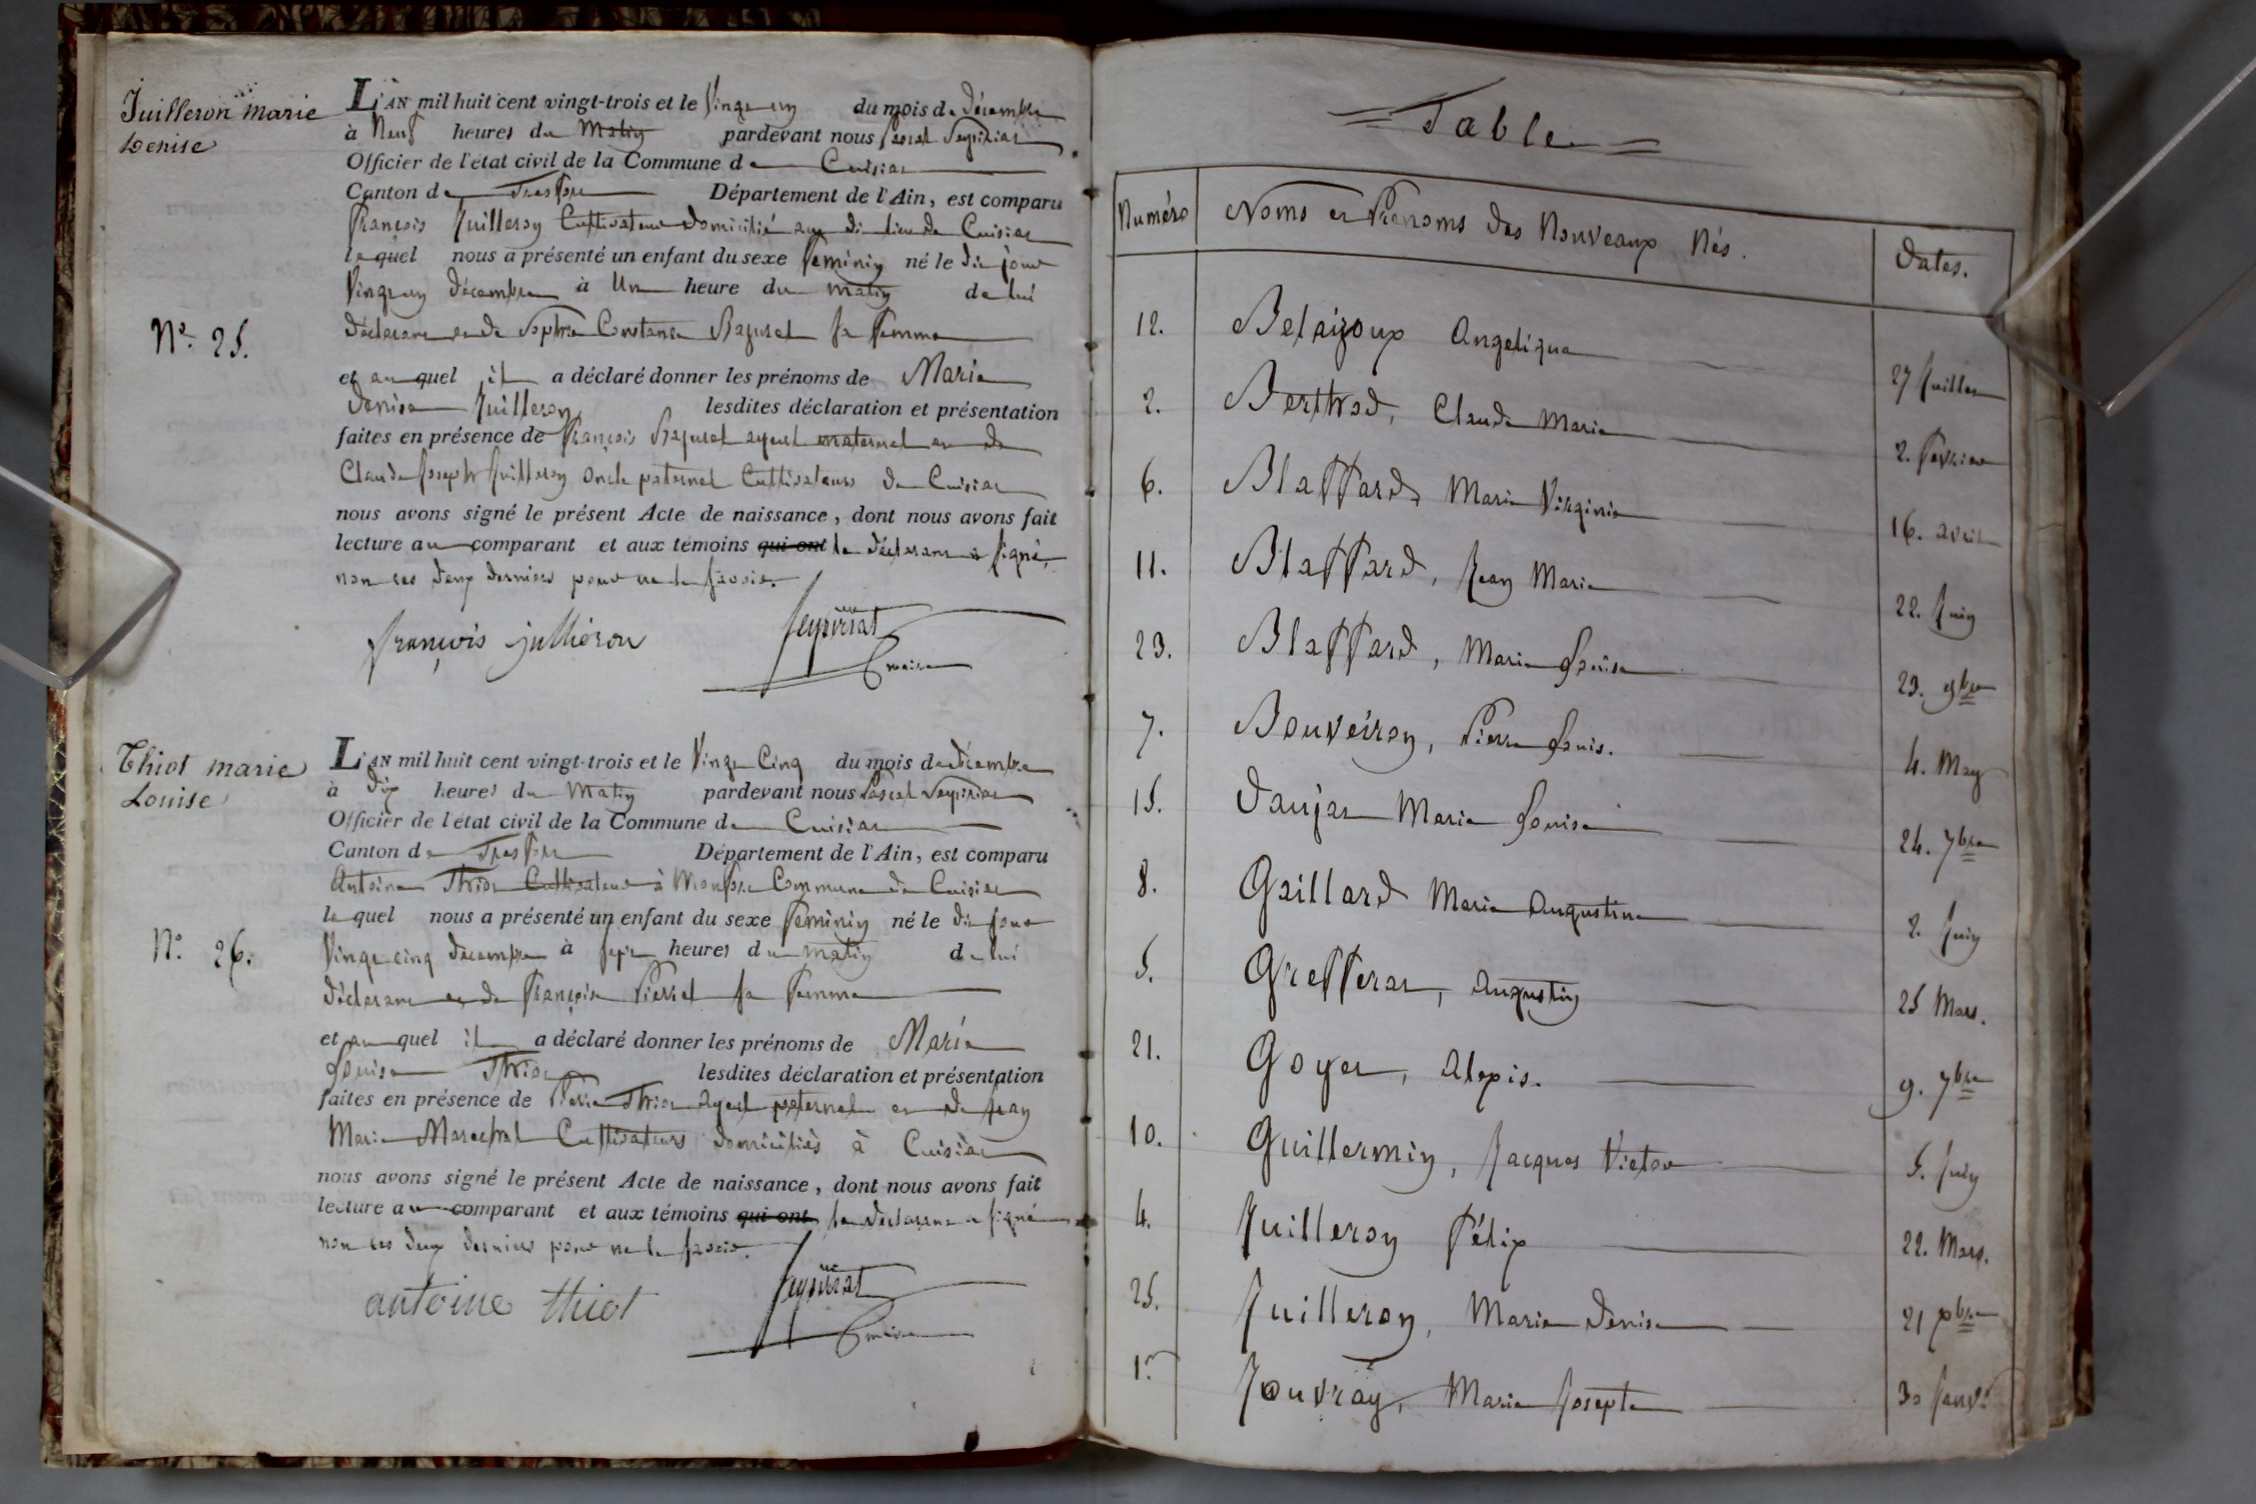 Juilleron marie
Denise
L'AN mil huit cent vingt-trois et le Vingt un du mois de décembre
à Neuf heures du Matin pardevant nous Pascal Seyvirat
Officier de l'état civil de la Commune de Cuisiat
Canton de Treffort Département de l'Ain, est comparu
françois Juilleron Cultivateur domicilié au dit lieu de Cuisiat
lequel nous a présenté un enfant du sexe féminin né le dit jour
Vingt un décembre à Une heure du matin de lui
N.o 25.
déclarant et de Sophie Constance sa femme
et au quel il a déclaré donner les prénoms de Marie
denise Juilleron lesdites déclaration et présentation
faites en présence de françois ayeul maternel et de
Claude Joseph Juilleron Oncle paternel Cultivateurs de Cuisiat
nous avons signé le présent Acte de naissance, dont nous avons fait
lecture au comparant et aux témoins qui ont le déclarant a signé,
non les deux derniers pour ne le savoir.
françois juilleron Seyvirat
maire
Thiot marie
Louise
L'AN mil huit cent vingt-trois et le Vingt Cinq du mois de décembre
à dix heures du Matin pardevant nous Pascal Seyvirat
Officier de l'état civil de la Commune de Cuisiat
Canton de Treffort Département de l'Ain, est comparu
Antoine Thiot Cultivateur à Montfort Commune de Cuisiat
lequel nous a présenté un enfant du sexe féminin né le dit jour
N.o 26.
Vingt cinq décembre à sept heures du matin de lui
déclarant et de françoise Pierrel sa femme
et au quel il a déclaré donner les prénoms de Marie
Louise Thiot lesdites déclaration et présentation
faites en présence de Pierre Thiot ayeul paternel et de Jean
Marie Marechal Cultivateurs domiciliés à Cuisiat
nous avons signé le présent Acte de naissance, dont nous avons fait
lecture au comparant et aux témoins qui ont le déclarant a signé
non les deux derniers pour ne le savoir.
antoine thiot Seyvirat
maire
Table
Numéro Noms et Prénoms des Nouveaux Nés. Dates.
12. Belaizoux Angelique 27 Juillet
2. Berthod, Claude Marie 2. février
6. Blaffard, Marie Virginie 16. avril
11. Blaffard, Jean Marie 22. Juin
23. Blaffard, Marie Louise 23. 9bre
7. Bouveiron, Pierre Louis. 4. May
15. Daujat Marie Louise 24. 7bre
8. Gaillard Marie Augustine 2. Juin
5. Grefferat, Augustin 25 Mars.
21. Goyet, Alexis. 9. 7bre
10. Guillermin, Jacques Victor 5. Juin
4. Juilleron Félix 22. Mars.
25. Juilleron, Marie Denise 21 xbre
1.er Jouvray, Marie Josepte 30 Janv.er